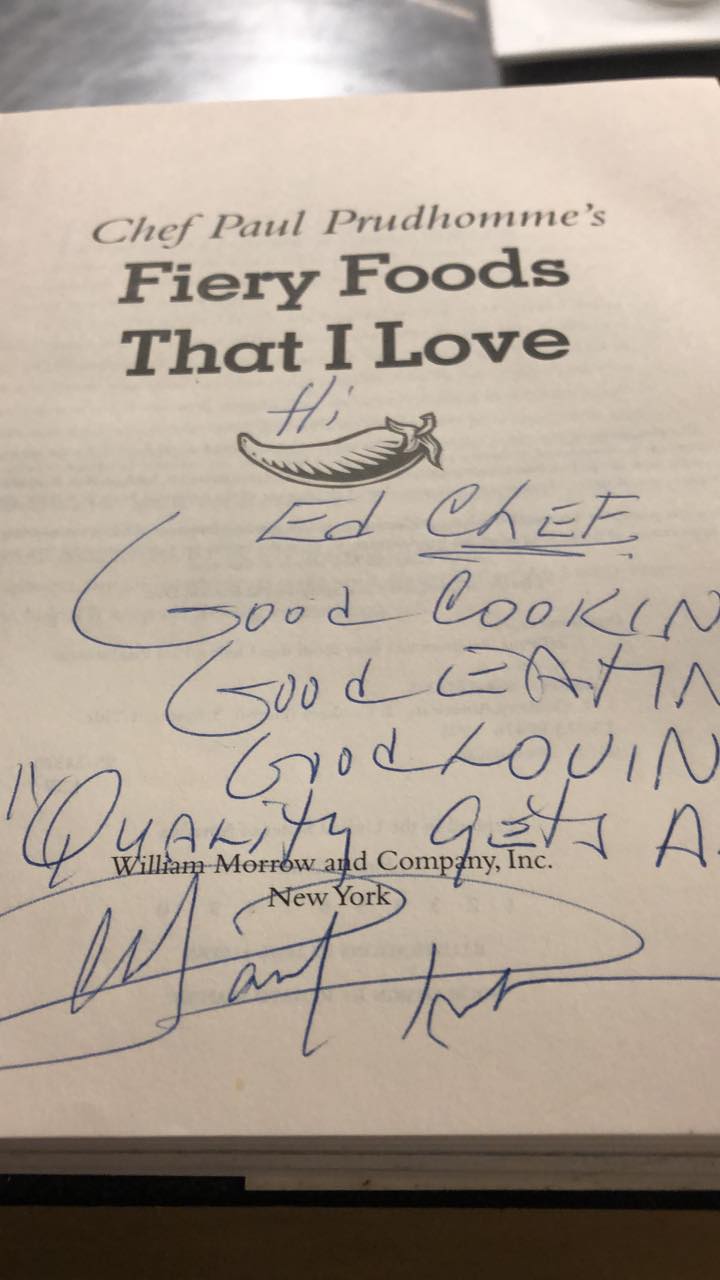 Chef Paul Prudhomme's
Fiery Foods
That I Love
Hi
Ed CHEF
Good COOKIN
Good EATIN
Good LOVIN
"QUALITY GETS A
William Morrow and Company, Inc.
New York